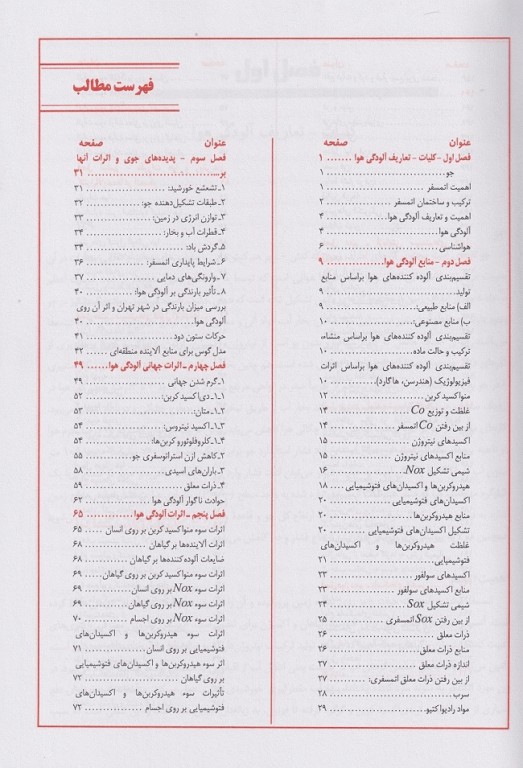 فهرست مطالب
عنوان صفحه
فصل اول - کلیات - تعاریف آلودگی هوا ....... ۱
جو ....... ۱
اهمیت اتمسفر ....... ۱
ترکیب و ساختمان اتمسفر ....... ۲
اهمیت و تعاریف آلودگی هوا ....... ۴
آلودگی هوا ....... ۴
هواشناسی ....... ۶
فصل دوم - منابع آلودگی هوا ....... ۹
تقسیم‌بندی آلوده کننده‌های هوا براساس منابع
تولید ....... ۹
الف) منابع طبیعی: ....... ۹
ب) منابع مصنوعی: ....... ۱۰
تقسیم‌بندی آلوده کننده‌های هوا براساس منشاء،
ترکیب و حالت ماده ....... ۱۰
تقسیم‌بندی آلوده کننده‌های هوا براساس اثرات
فیزیولوژیک (هندرسن، هاگارد) ....... ۱۰
منواکسید کربن ....... ۱۲
غلظت و توزیع Co ....... ۱۴
از بین رفتن Co اتمسفر ....... ۱۴
اکسیدهای نیتروژن ....... ۱۵
منابع اکسیدهای نیتروژن ....... ۱۵
شیمی تشکیل Nox ....... ۱۶
هیدروکربن‌ها و اکسیدان‌های فتوشیمیایی ....... ۱۸
اکسیدان‌های فتوشیمیایی ....... ۲۰
منابع هیدروکربن‌ها ....... ۲۰
تشکیل اکسیدان‌های فتوشیمیایی ....... ۲۰
غلظت هیدروکربن‌ها و اکسیدان‌های
فتوشیمیایی ....... ۲۱
اکسیدهای سولفور ....... ۲۳
منابع اکسیدهای سولفور ....... ۲۳
شیمی تشکیل Sox ....... ۲۴
از بین رفتن Sox اتمسفری ....... ۲۵
ذرات معلق ....... ۲۶
منابع ذرات معلق ....... ۲۶
اندازه ذرات معلق ....... ۲۷
از بین رفتن ذرات معلق اتمسفری: ....... ۲۷
سرب ....... ۲۸
مواد رادیواکتیو ....... ۲۹
عنوان صفحه
فصل سوم - پدیده‌های جوی و اثرات آنها
بر ....... ۳۱
۱ـ تشعشع خورشید: ....... ۳۱
۲ـ طبقات تشکیل‌دهنده جو: ....... ۳۲
۳ـ توازن انرژی در زمین: ....... ۳۳
۴ـ قطرات آب و بخار: ....... ۳۴
۵ـ گردش باد: ....... ۳۴
۶ـ شرایط پایداری اتمسفر: ....... ۳۶
۷ـ وارونگی‌های دمایی ....... ۳۷
۸ـ تأثیر بارندگی بر آلودگی هوا: ....... ۴۰
بررسی میزان بارندگی در شهر تهران و اثر آن روی
آلودگی هوا ....... ۴۰
حرکات ستون دود ....... ۴۱
مدل گوس برای منابع آلاینده منطقه‌ای ....... ۴۲
فصل چهارم ـ اثرات جهانی آلودگی هوا ....... ۴۹
۱ـ گرم شدن جهانی ....... ۴۹
۱ـ۱ـ دی‌اکسید کربن: ....... ۵۲
۲ـ۱ـ متان: ....... ۵۳
۳ـ۱ـ اکسید نیتروس: ....... ۵۴
۴ـ۱ـ کلروفلوئورو کربن‌ها: ....... ۵۴
۲ـ کاهش ازن استراتوسفری جو ....... ۵۵
۳ـ باران‌های اسیدی ....... ۵۸
۴ـ ذرات معلق ....... ۵۹
حوادث ناگوار آلودگی هوا ....... ۶۲
فصل پنجم ـ اثرات آلودگی هوا ....... ۶۵
اثرات سوء منواکسید کربن بر روی انسان ....... ۶۵
اثرات آلاینده‌ها بر گیاهان ....... ۶۸
ضایعات آلوده کننده‌ها بر گیاهان ....... ۶۸
اثرات سوء منواکسید کربن بر روی گیاهان ....... ۶۹
اثرات سوء Nox بر روی انسان ....... ۶۹
اثرات سوء Nox بر روی گیاهان ....... ۶۹
اثرات سوء Nox بر روی اجسام ....... ۷۰
اثرات سوء هیدروکربن‌ها و اکسیدان‌های
فتوشیمیایی بر روی انسان ....... ۷۱
اثر سوء هیدروکربن‌ها و اکسیدان‌های فتوشیمیایی
بر روی گیاهان ....... ۷۲
تأثیرات سوء هیدروکربن‌ها و اکسیدان‌های
فتوشیمیایی بر روی اجسام ....... ۷۲